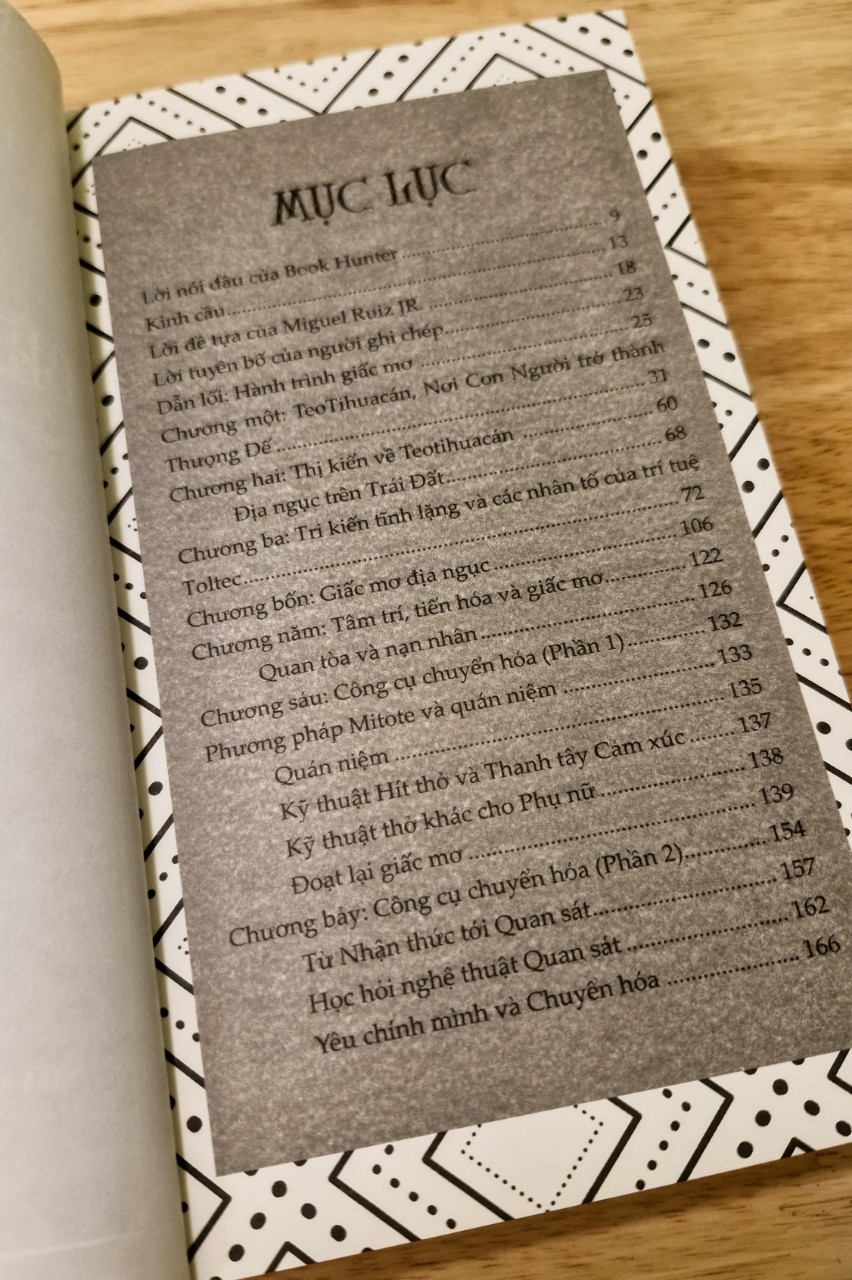 MỤC LỤC
Lời nói đầu của Book Hunter ........................ 9
Kinh cầu ........................ 13
Lời đề tựa của Miguel Ruiz JR. ........................ 18
Lời tuyên bố của người ghi chép ........................ 23
Dẫn lối: Hành trình giấc mơ ........................ 25
Chương một: TeoTihuacán, Nơi Con Người trở thành
Thượng Đế ........................ 31
Chương hai: Thị kiến về Teotihuacán ........................ 60
Địa ngục trên Trái Đất ........................ 68
Chương ba: Tri kiến tĩnh lặng và các nhân tố của trí tuệ
Toltec ........................ 72
Chương bốn: Giấc mơ địa ngục ........................ 106
Chương năm: Tâm trí, tiến hóa và giấc mơ ........................ 122
Quan tòa và nạn nhân ........................ 126
Chương sáu: Công cụ chuyển hóa (Phần 1) ........................ 132
Phương pháp Mitote và quán niệm ........................ 133
Quán niệm ........................ 135
Kỹ thuật Hít thở và Thanh tẩy Cảm xúc ........................ 137
Kỹ thuật thở khác cho Phụ nữ ........................ 138
Đoạt lại giấc mơ ........................ 139
Chương bảy: Công cụ chuyển hóa (Phần 2) ........................ 154
Từ Nhận thức tới Quan sát ........................ 157
Học hỏi nghệ thuật Quan sát ........................ 162
Yêu chính mình và Chuyển hóa ........................ 166